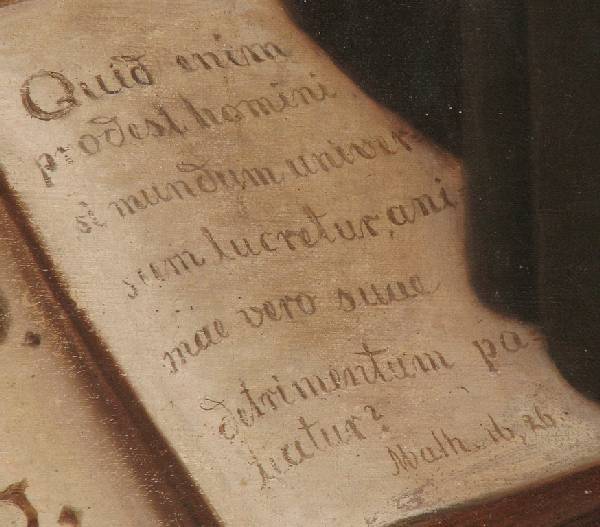 Quid enim
prodest homini
si mundum univer-
sum lucretur, ani-
mae vero suae
detrimentum pa-
tiatur?
Math. 16, 26.